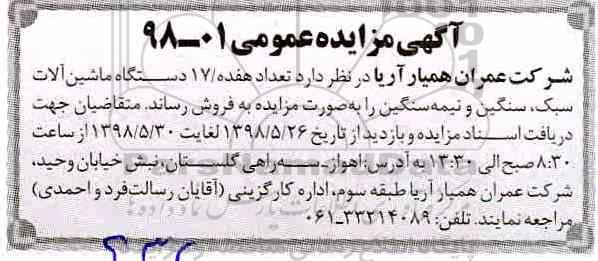 آگهی مزایده عمومی ۰۱-۹۸
شرکت عمران همیار آریا در نظر دارد تعداد هفده/۱۷ دستگاه ماشین‌آلات
سبک، سنگین و نیمه‌سنگین را به‌صورت مزایده به فروش رساند. متقاضیان جهت
دریافت اسناد مزایده و بازدید از تاریخ ۱۳۹۸/۵/۲۶ لغایت ۱۳۹۸/۵/۳۰ از ساعت
۸:۳۰ صبح الی ۱۳:۳۰ به آدرس: اهواز- سه‌راهی گلستان، نبش خیابان وحید،
شرکت عمران همیار آریا طبقه سوم، اداره کارگزینی (آقایان رسالت‌فرد و احمدی)
مراجعه نمایند. تلفن: ۳۳۲۱۴۰۸۹-۰۶۱